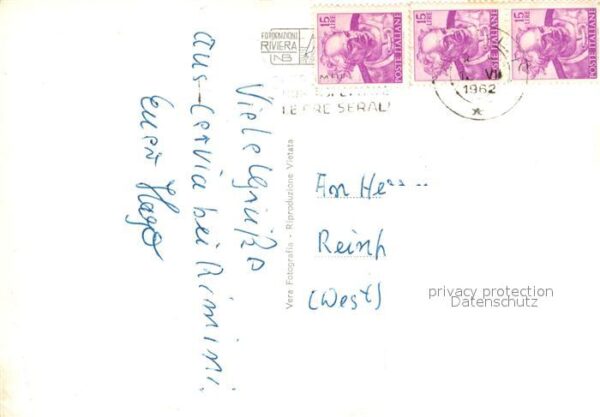 FORMAZIONI
RIVIERA
NB
15 LIRE
POSTE ITALIANE
15 LIRE
POSTE ITALIANE
15 LIRE
POSTE ITALIANE
VII
1962
SERALI
Viele Grüße
aus Cervia bei Rimini.
Euer Hugo
Vera Fotografia - Riproduzione Vietata
An Herr
Reinh
(West)
privacy protection
Datenschutz